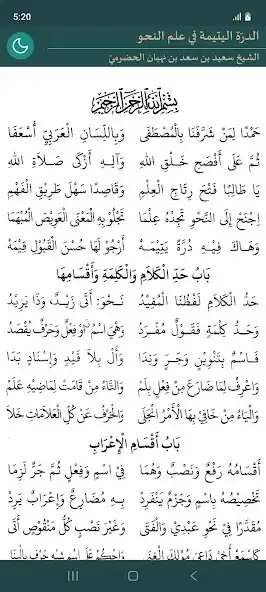 5:20
الدرّة اليتيمة في علم النحو
الشيخ سعيد بن سعد بن نبهان الحضرميّ
بِسْمِ اللَّهِ الرَّحْمَنِ الرَّحِيمِ
حَمْدًا لِمَنْ شَرَّفَنَا بِالْمُصْطَفَى وَبِاللِّسَانِ الْعَرَبِيِّ أَسْعَفَا
ثُمَّ عَلَى أَفْصَحِ خَلْقِ اللهِ وَآلِهِ أَزْكَى صَلَاةِ اللهِ
يَا طَالِبًا فَتْحَ رِتَاجِ الْعِلْمِ وَقَاصِدًا سَهْلَ طَرِيقِ الْفَهْمِ
اِجْنَحْ إِلَى النَّحْوِ تَجِدْهُ عِلْمَا تَجْلُو بِهِ الْمَعْنَى الْعَوِيصَ الْمُبْهَمَا
وَهَاكَ فِيهِ دُرَّةً يَتِيمَهْ أَرْجُو لَهَا حُسْنَ الْقَبُولِ قِيمَهْ
بَابُ حَدِّ الْكَلَامِ وَالْكَلِمَةِ وَأَقْسَامِهَا
حَدُّ الْكَلَامِ لَفْظُنَا الْمُفِيدُ نَحْوُ: أَتَى زَيْدٌ، وَذَا يَزِيدُ
وَحَدُّ كِلْمَةٍ فَقَوْلٌ مُفْرَدُ وَهْيَ اسْمٌ اوْ فِعْلٌ وَحَرْفٌ يُقْصَدُ
فَاسْمٌ بِتَنْوِينٍ وَجَرٍّ وَنِدَا وَأَلْ بِلَا قَيْدٍ وَإِسْنَادٍ بَدَا
وَاعْرِفْ لِمَا ضَارَعَ مِنْ فِعْلٍ بِلَمْ وَالتَّاءُ مِنْ قَامَتْ لِمَاضِيهِ عَلَمْ
وَالْيَاءُ مِنْ خَافِي بِهَا الْأَمْرُ انْجَلَى وَالْحَرْفُ عَنْ كُلِّ الْعَلَامَاتِ خَلَا
بَابُ أَقْسَامِ الْإِعْرَابِ
أَقْسَامُهُ رَفْعٌ وَنَصْبٌ وَهُمَا فِي اسْمٍ وَفِعْلٍ ثُمَّ جَرٌّ لَزِمَا
تَخْصِيصُهُ بِاسْمٍ وَجَزْمٌ يَنْفَرِدْ بِهِ مُضَارِعٌ وَإِعْرَابٌ يَرِدْ
مُقَدَّرًا فِي نَحْوِ عَبْدِي وَالْفَتَى وَغَيْرَ نَصْبٍ كُلُّ مَنْقُوصٍ أَتَى